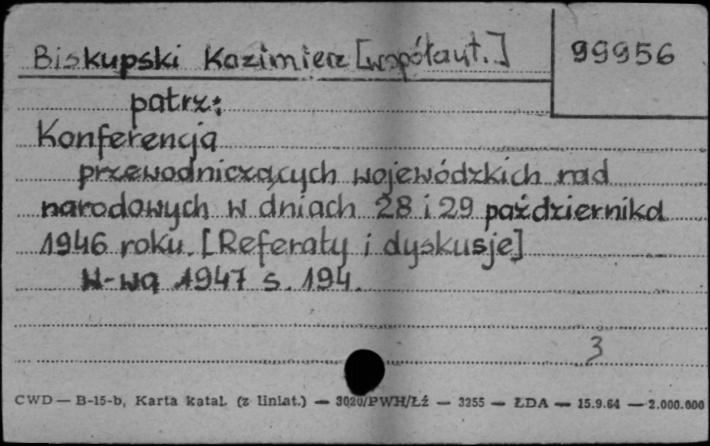 Biskupski Kazimierz [współaut.]
99956
patrz:
Konferencja
przewodniczących wojewódzkich rad
narodowych w dniach 28 i 29 października
1946 roku. [Referaty i dyskusje]
W-wa 1947 s. 194.
3
CWD — B-15-b, Karta katal. (z liniat.) — 3020/PWH/Łź — 3255 — ŁDA — 15.9.64 — 2.000.000